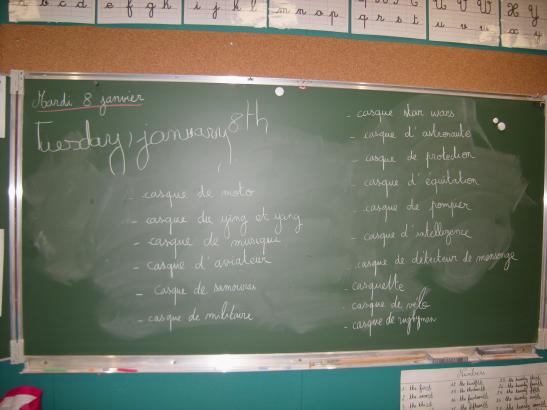 a b c d
e f g h
i j k l
m n o p
q r s t
u v w
X Y
x y
Mardi 8 janvier
Tuesday, january 8th
- casque de moto
- casque du ying et yang
- casque de musique
- casque d'aviateur
- casque de samouraï
- casque de militaire
- casque star wars
- casque d'astronaute
- casque de protection
- casque d'équitation
- casque de pompier
- casque d'intelligence
- casque de détecteur de mensonge
- casquette
- casque de vélo
- casque de rugbyman
Numbers
1. the first
2. the second
3. the third